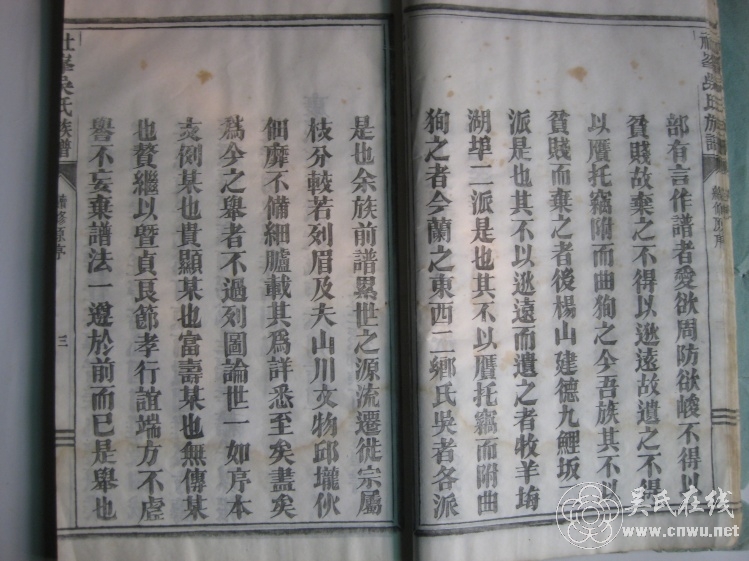 部有言作譜者愛欲周防欲峻不得以
貧賤故棄之不得以逖遠故遺之不得
以贋托竊附而曲狥之今吾族其不以
貧賤而棄之者後楊山建德九鯉坂
派是也其不以逖遠而遺之者牧羊塢
湖埠二派是也其不以贋托竊而附曲
狥之者今蘭之東西二鄉氏吳者各派
是也余族前譜累世之源流遷徙宗屬
枝分較若列眉及夫山川文物邱壠伙
佃靡不備細臚載其爲詳悉至矣盡矣
爲今之舉者不過列圖論世一如序本
支例某也貴顯某也富壽某也無傳某
也贅繼以暨貞艮節孝行誼端方不虛
譽不妄棄譜法一遵於前而已是舉也
峯吳氏族譜
續修原序
社峯吳氏族譜
續修原序
三
吴氏在线
www.cnwu.net